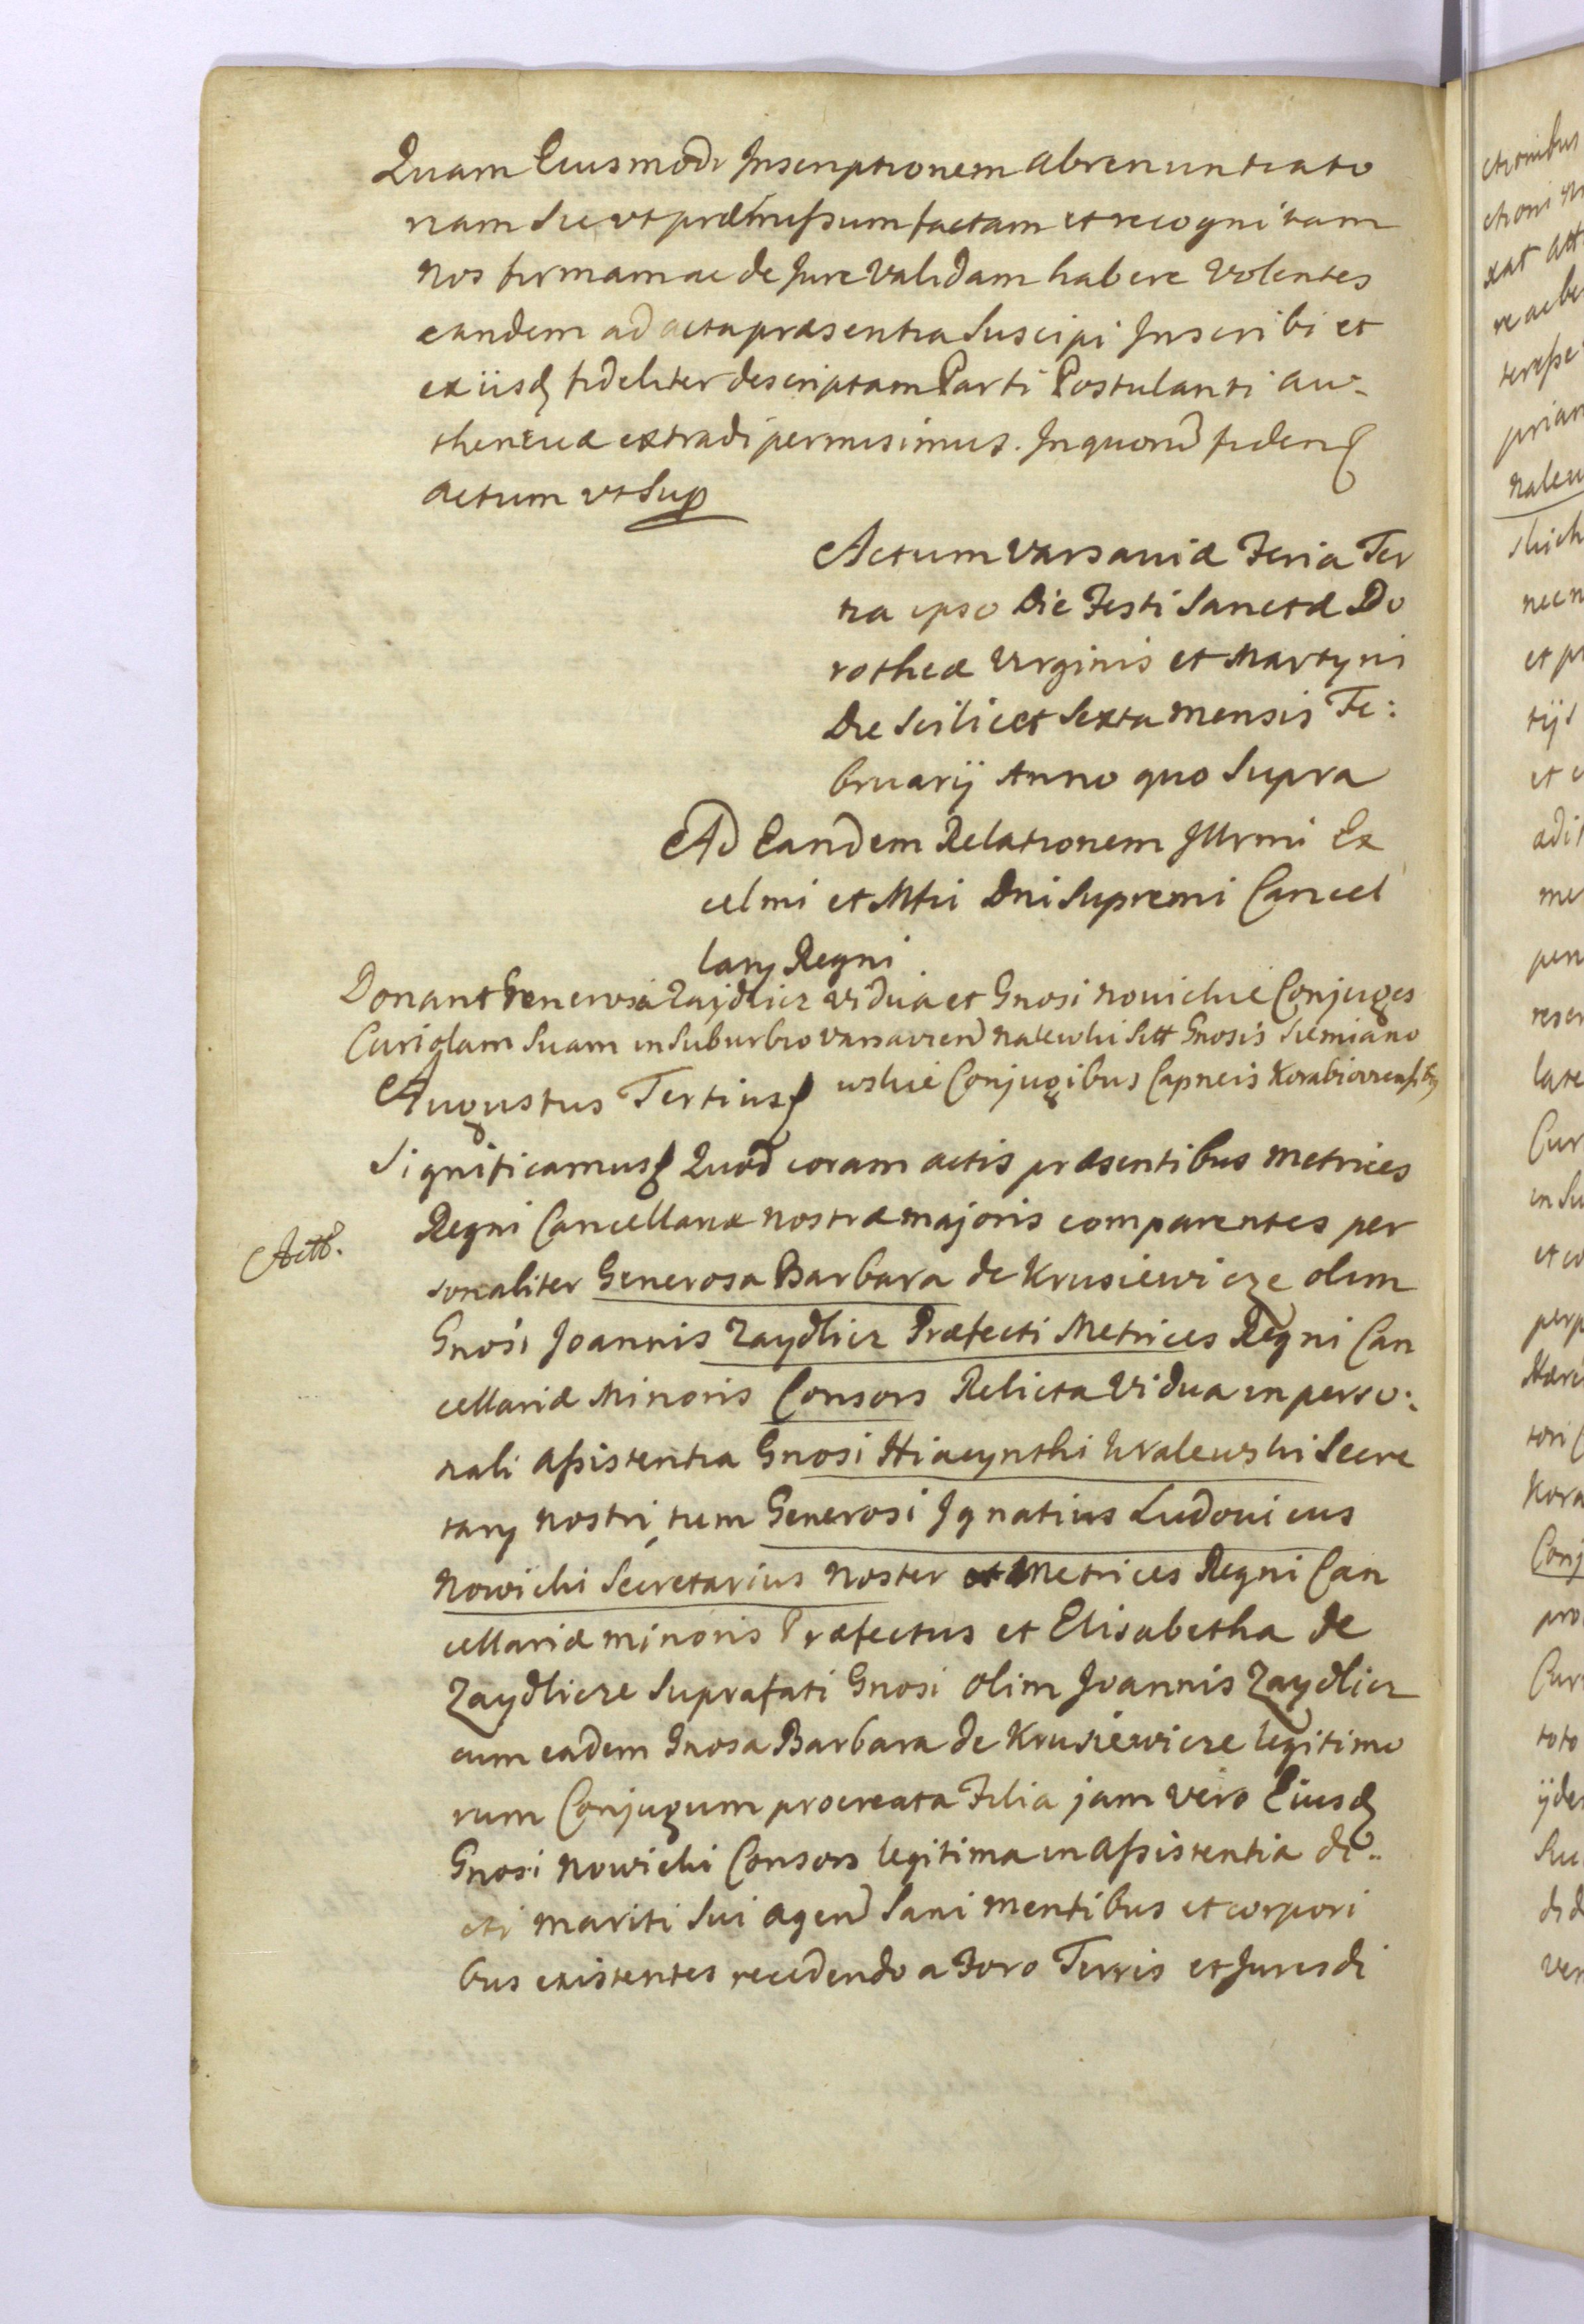 Quam Eiusmodi Inscriptionem abrenuntiato
riam sic ut præmissum factam et recognitam
Nos firmam ac de Jure validam habere volentes
eandem ad acta præsentia Suscipi Inscribi et
ex iisdȝ fideliter descriptam Parti Postulanti au-
thenticæ extradi permisimus. In quoru fidem
actum ut Sup
Actum Varsaviæ Feria Ter
tia ipso Die Festi Sanctæ Do
rotheæ Virginis et Martyris
Die Scilicet Sexta Mensis Fe:
bruarij Anno quo Supra
Ad Eandem Relationem Illrmi Ex
cellmi et Mfci Dni Supremi Cancel
larij Regni
Donant Generosa Zaydlicz Vidua et Gnosi Nowickie Conjuges
Curiolam Suam in Suburbio Varsavien Nalewki Sitt Gnosis Siemiano
wskie Conjugibus Capneis Korabioviensibus
Augustus Tertius
Significamus Quod coram actis præsentibus Metrices
Actt.
Regni Cancellariæ nostræ majoris comparentes per
sonaliter Generosa Barbara de Krusiewicze olim
Gnosi Joannis Zaydlicz Præfecti Metrices Regni Can
cellariæ Minoris Consors Relicta Vidua in perso:
nali assistentia Gnosi Hiacynthi Walewski Secre
tarij nostri, tum Generosi Ignatius Ludovicus
Nowicki Secretarius Noster et Metrices Regni Can
cellariæ minoris Præfectus et Elisabetha de
Zaydlicze Suprafati Gnosi olim Joannis Zaydlicz
cum eadem Gnosa Barbara de Krusiewicze legitimo
rum Conjugum procreata Filia jam vero Eiusdȝ
Gnosi Nowicki Consors legitima in assistentia di-
cti mariti Sui agen Sani mentibus et corpori
bus existentes recedendo a Foro Terris et Jurisdi